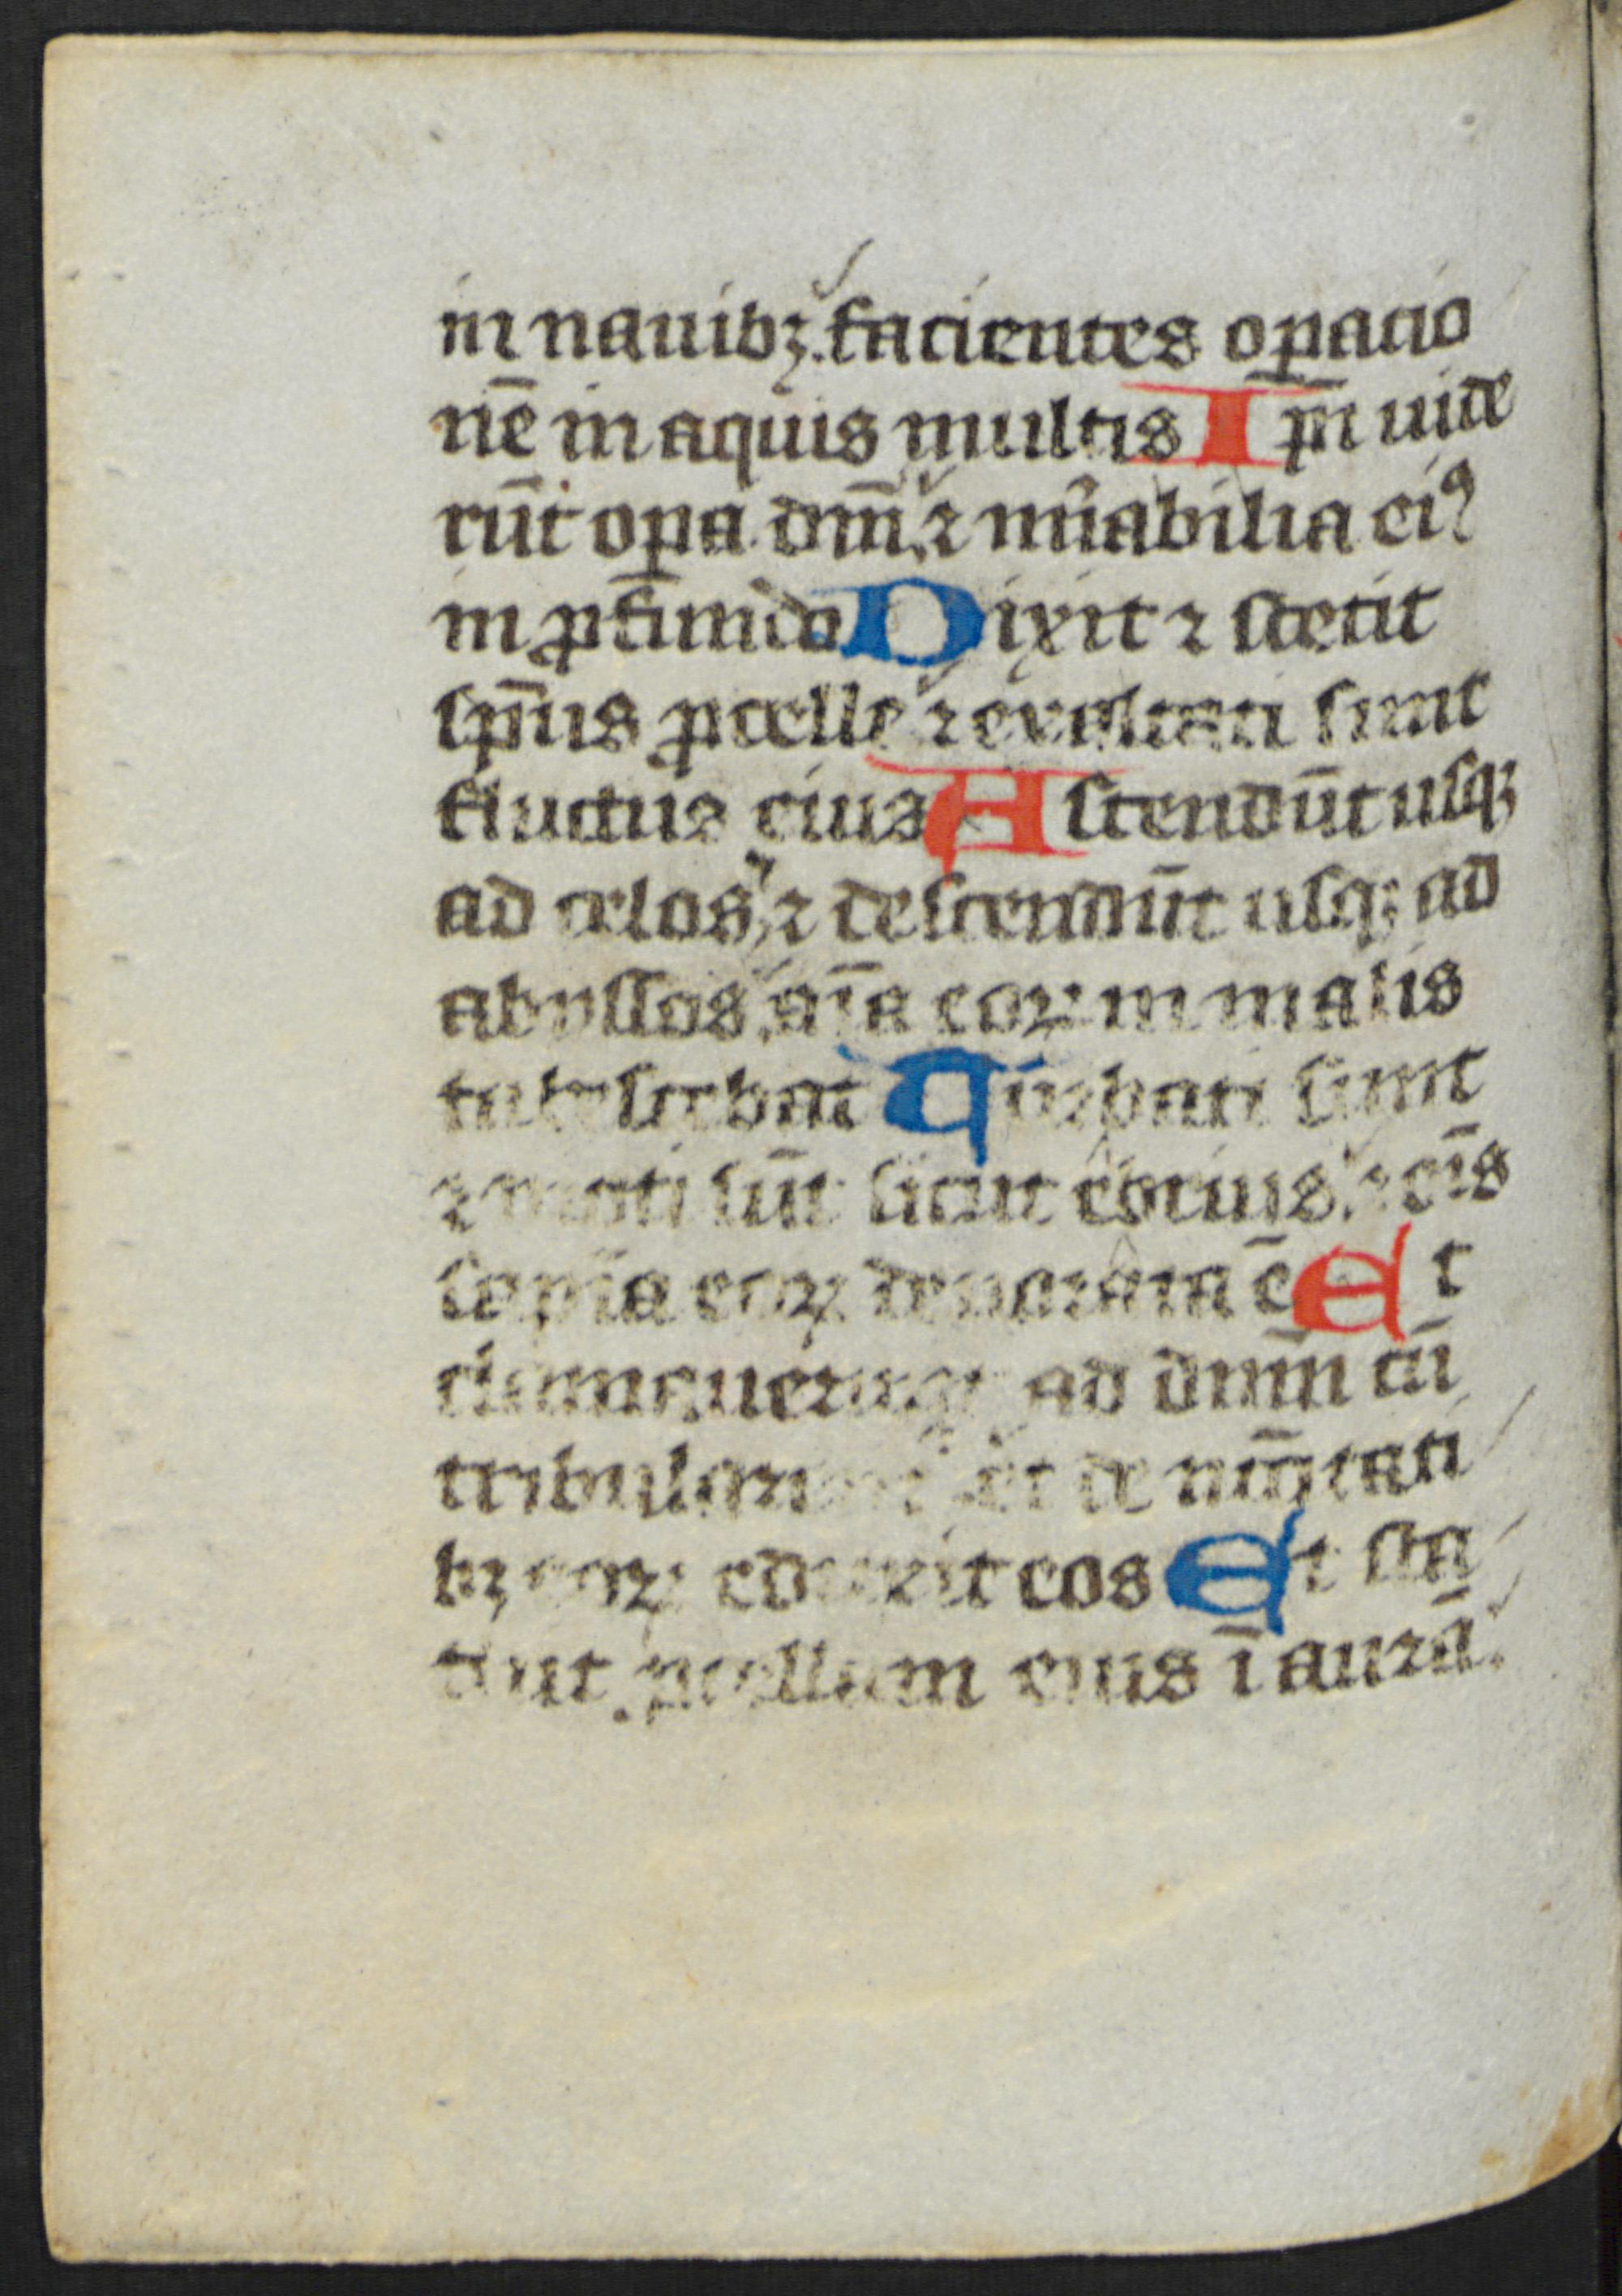 in nauibꝫ. facientes oꝑacio
nē in aquis multis Ipī uide
rūt oꝑa dn̄i ⁊ mirabilia eiꝰ
in ꝓfundo Dixit ⁊ stetit
sp̄us ꝓcelle ⁊ exaltati sunt
fluctus eius Ascendūt usqꝫ
ad celos ⁊ descendūt usqꝫ ad
abyssos. aīa eoꝝ in malis
tabescebat Turbati sunt
⁊ moti sūt sicut ebrius. ⁊ oīs
sapīa eoꝝ deuorata ē Et
clamauerunt ad dnm̄ cū
tribularent et de nec̄itati
bꝫ eoꝝ eduxit eos Et sta
tuit ꝓcellam eius ī aurā.